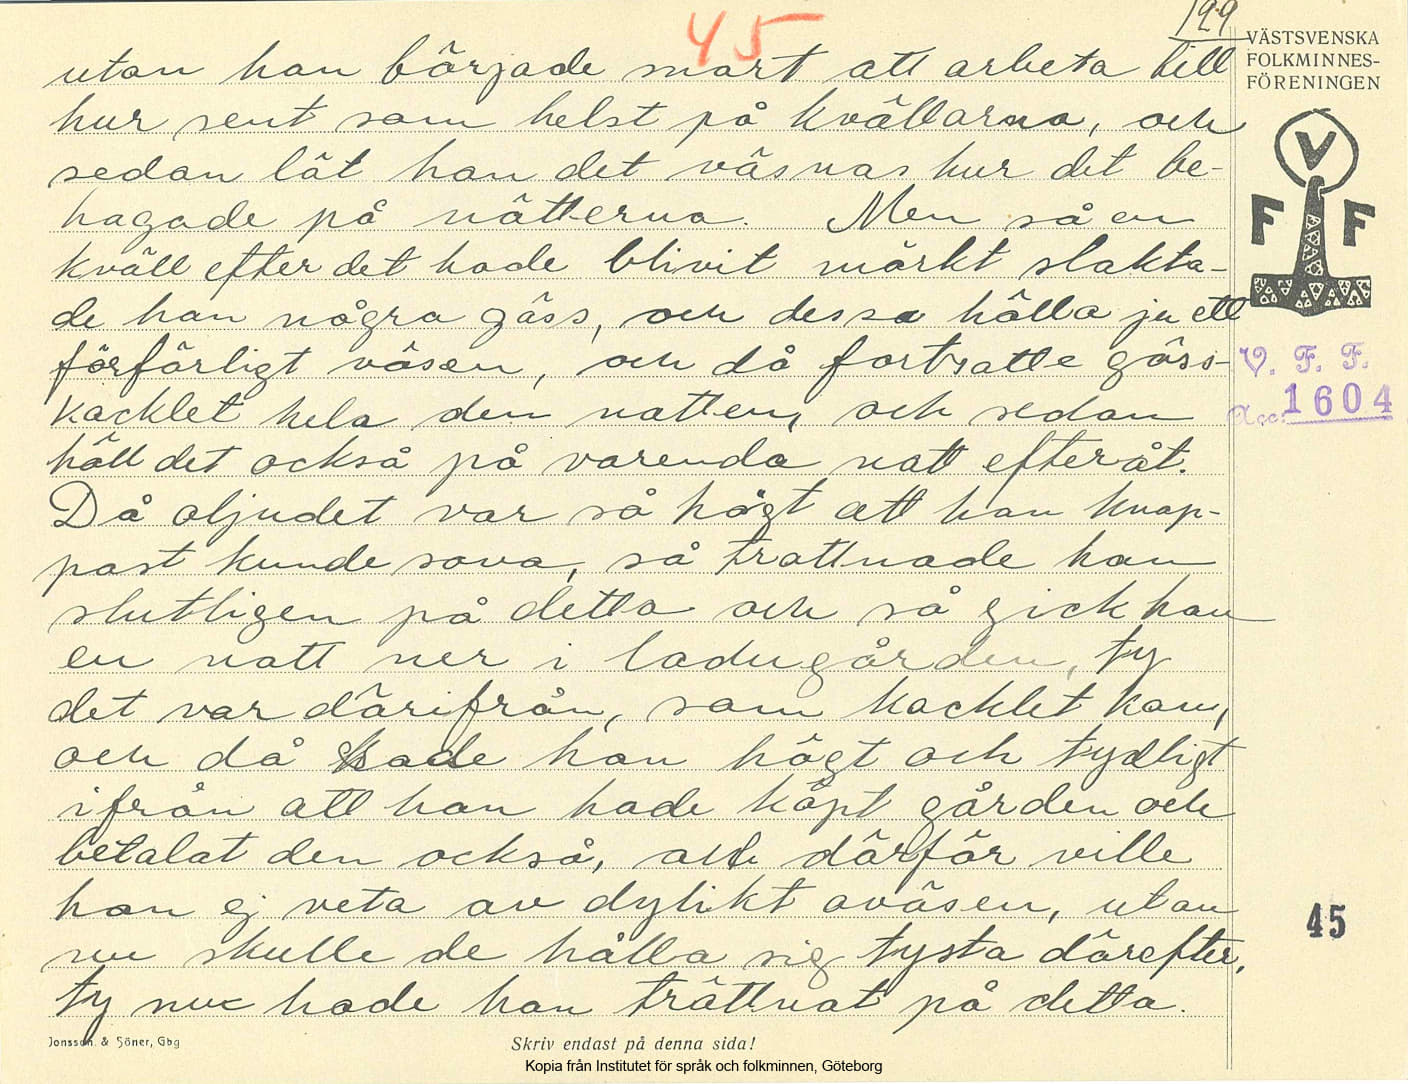 45
199
VÄSTSVENSKA
FOLKMINNES-
FÖRENINGEN
utan han började snart att arbeta till
hur sent som helst på kvällarna, och
sedan lät han det väsnas hur det be-
hagade på nätterna. Men så en
kväll efter det hade blivit mörkt slakta-
de han några gäss, och dessa hålla ju ett
förfärligt väsen, och då fortsatte gäss-
kacklet hela den natten, och sedan
höll det också på varenda natt efteråt.
Då oljudet var så högt att han knap-
past kunde sova, så tröttnade han
slutligen på detta och så gick han
en natt ner i ladugården, ty
det var därifrån, som kacklet kom,
och då sade han högt och tydligt
ifrån att han hade köpt gården och
betalat den också, och därför ville
han ej veta av dylikt oväsen, utan
nu skulle de hålla sig tysta därefter,
ty nu hade han tröttnat på detta.
V
F F
V. F. F.
Acc: 1604
45
Jonsson & Söner, Gbg
Skriv endast på denna sida!
Kopia från Institutet för språk och folkminnen, Göteborg